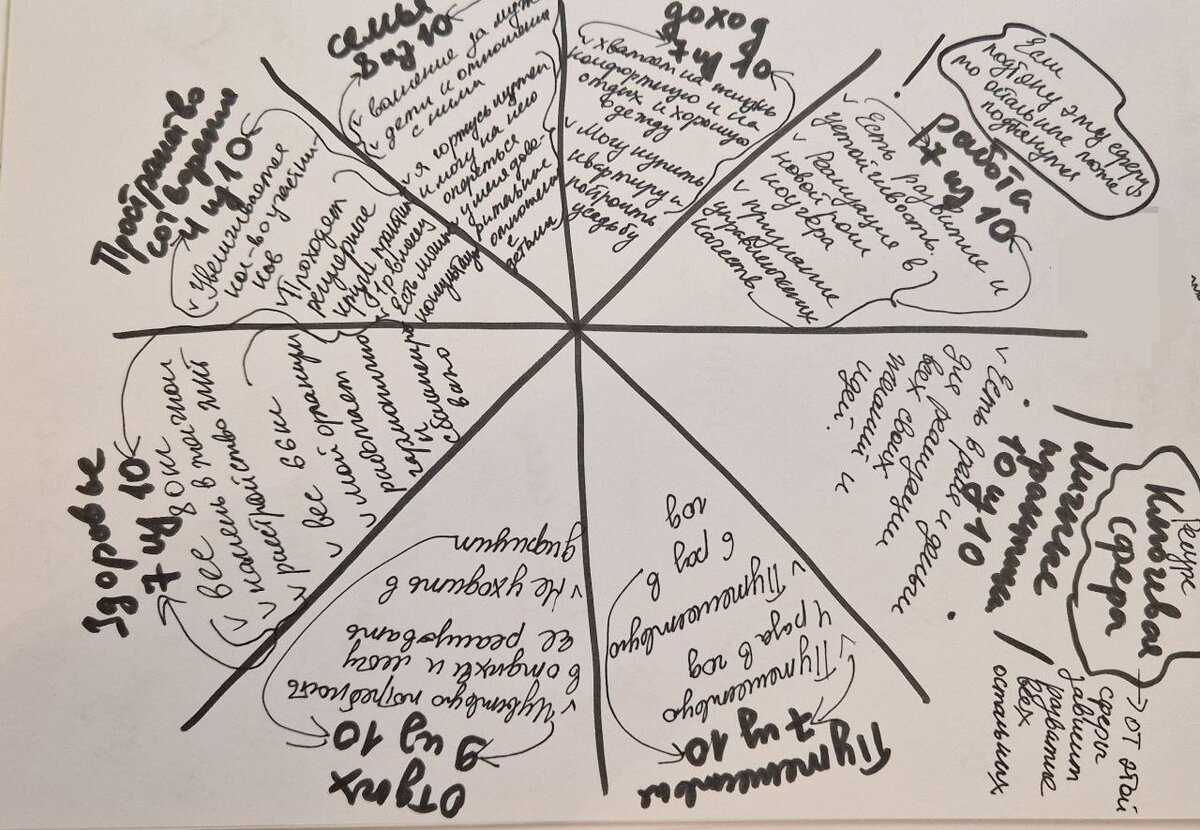 семья
8 из 10
v волнение за мужа
v дети и отношения
с ними
v я горжусь мужем
и могу на него
опереться
v у меня дове-
рительные
отношения
с
детьми
доход
7 из 10
v хватает на жизнь
комфортную и на
отдых и хорошую
одежду
v Могу купить
квартиру и
построить
усадьбу
Если
подтяну эту сферу
то остальные тоже
подтянутся
работа
7 из 10
v Есть развитие и
устойчивость.
v Реализация в
новой роли
коучера
v признание
управленческих
качеств.
Ресурс
Ключевая
сфера
→ от этой
сферы
зависит
развитие
всех
остальных
Личные
границы
10 из 10
v Есть время и деньги
для реализации
всех своих
желаний и
идей.
Путешествие
7 из 10
v Путешествую
4 раза в год
v Путешествую
6 раз в
год
Отдых
9 из 10
v Чувствую потребность
в отдыхе и могу
ее реализовать
v Не уходить в
дефицит
Здоровье
7 из 10
v вес 80 кг
v
v расстройство
вес 66 кг
v вес
v мой организм
работает
гармонично
и
сбаланси
вано
Пространство
сотворения
4 из 10
v Увеличивается
кол-во участни-
ков
v Проходят
регулярные
v Есть